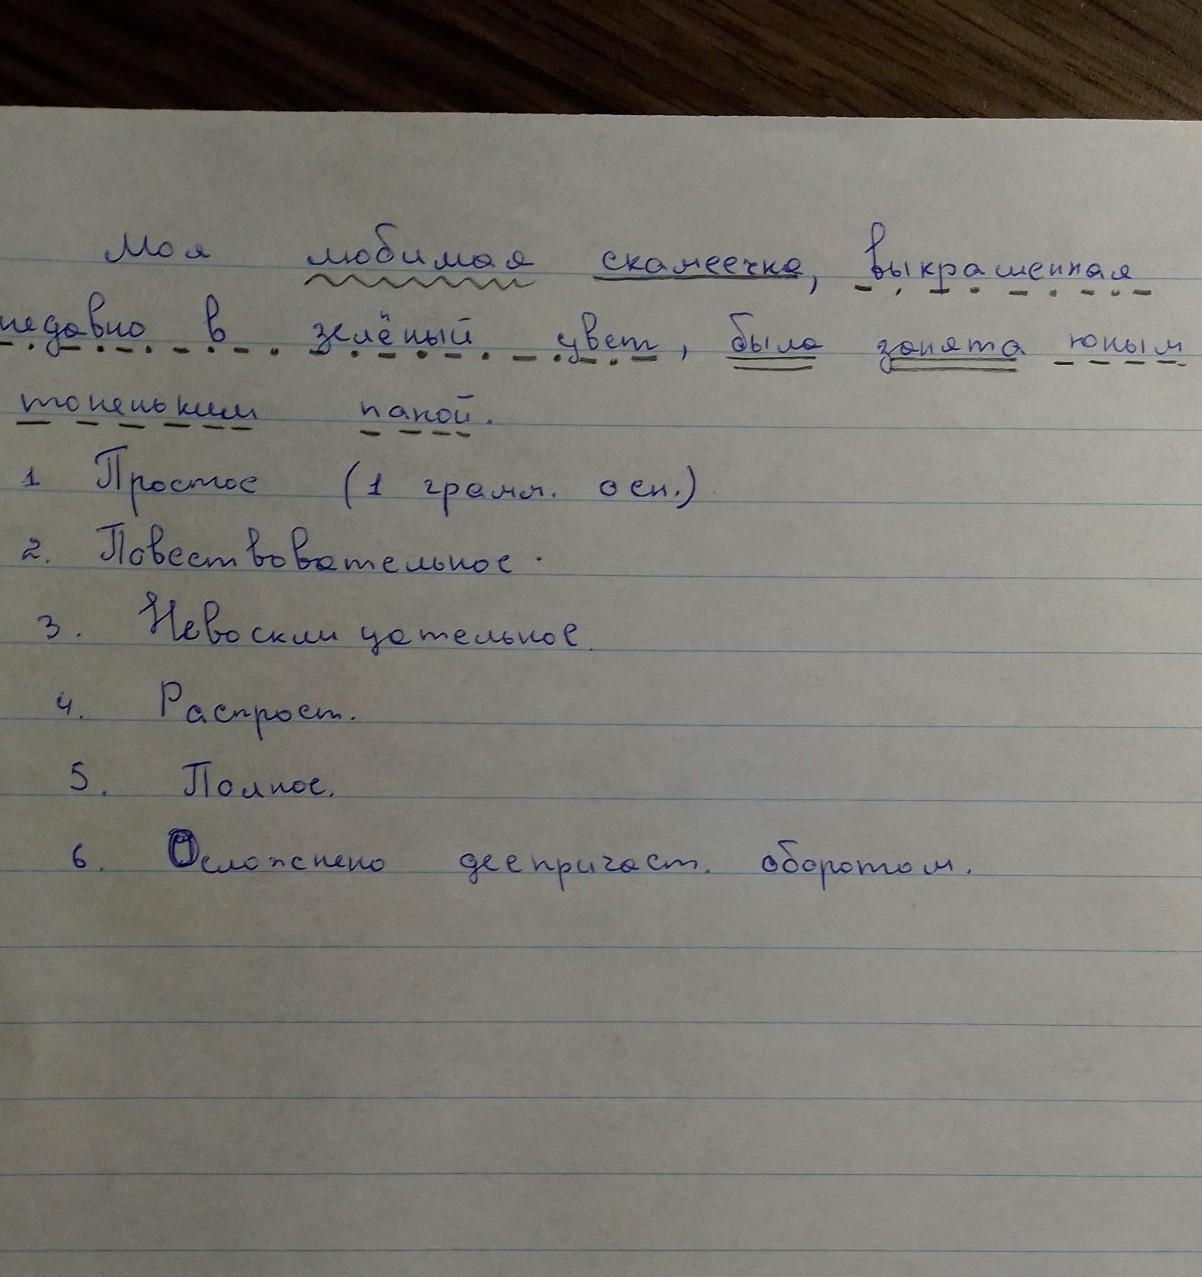 Моя любимая скамеечка, выкрашенная
недавно в зелёный цвет, была занята юным
тоненьким папой.
1 Простое (1 грамм. осн.)
2. Повествовательное.
3. Невосклицательное.
4. Распрост.
5. Полное.
6. Осложнено деепричаст. оборотом.